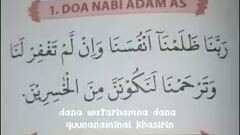 1. DOA NABI ADAM AS
رَبَّنَا ظَلَمْنَا أَنْفُسَنَا وَإِنْ لَمْ تَغْفِرْ لَنَا
وَتَرْحَمْنَا لَنَكُوْنَنَّ مِنَ الْخٰسِرِيْنَ.
dana watarhamna dana
quunanaminal khasirin